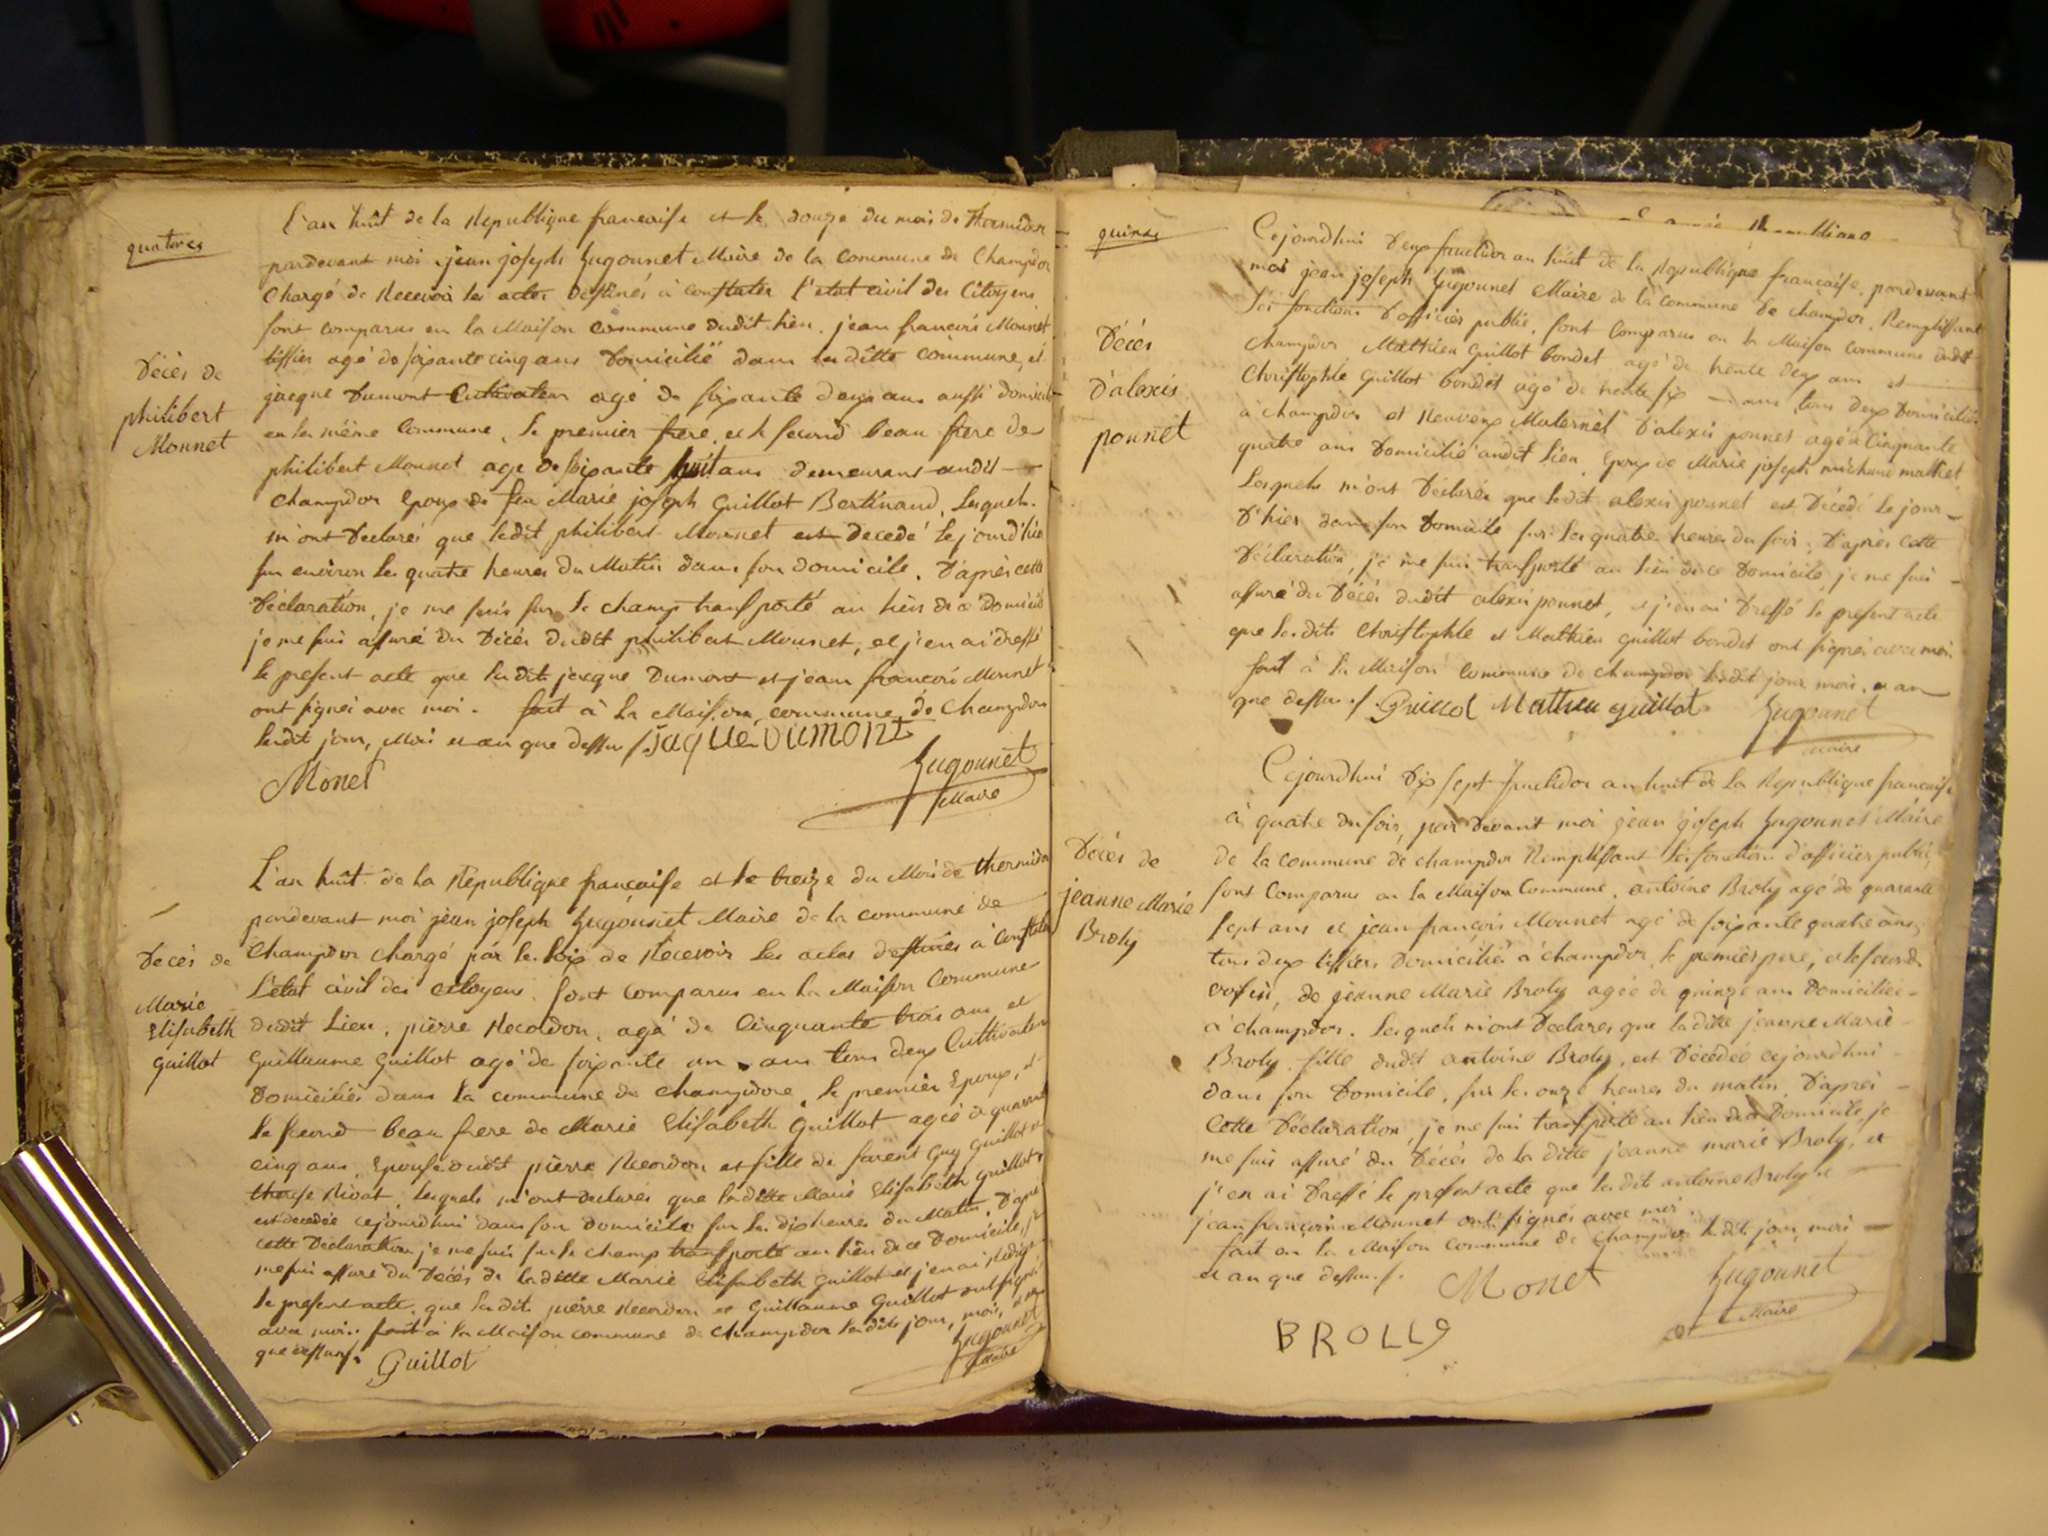 quatorze
L'an huit de la Republique francaise et le douze du mois de Thermidor
pardevant moi jean joseph Gugonnet Maire de la commune de Champdor
Chargé de Recevoir les actes destinés à constater l'etat civil des Citoyens
sont comparus en la Maison commune dudit lieu. jean francois Monnet
tissier agé de soixante cinq ans Domicilié dans laditte commune, et
jacque Dumont Cultivateur agé de soixante deux ans aussi domicilié
en la même Commune, le premier frere, et le second beau frere de
Décès de
philibert
Monnet
philibert Monnet agé de soixante huit ans demeurant audit
Champdor Epoux de feu Marie joseph Guillot Bertinand, Lesquels
m'ont Declarés que ledit philibert Monnet est decedé le jourd'hier
sur environ les quatre heures du Matin dans son domicile. D'après cette
Déclaration, je me suis sur le champ transporté au lieu de ce domicile
je me suis assuré du Décès dudit philibert Monnet, et j'en ai dressé
le present acte que lesdits jacque Dumont et jean francois Monnet
ont signés avec moi. fait à la Maison commune de Champdor
lesdit jour, Mois et an que dessus /. jaque DUMONT
Monet
Gugonnet
Maire
L'an huit de la République française et le treize du Mois de thermidor
pardevant moi jean joseph Gugonnet Maire de la commune de
Champdor chargé par les loix de Recevoir les actes destinés à constater
Décès de
Marie
Elisabeth
Guillot
l'etat civil des citoyens, sont comparus en la Maison Commune
dudit Lieu, pierre Recordon, agé de Cinquante trois ans et
Guillaume Guillot agé de soixante un ans tous deux Cultivateurs
Domiciliés dans la commune de champdore, le premier Epoux, et
le second beau frere de Marie Elisabeth Guillot agée de quarante
cinq ans, Epouse dudit pierre Recordon et fille de Guy Guillot et
therese Rivat, lesquels m'ont declarés que laditte Marie Elisabeth Guillot
est decedée cejourdhui dans son domicile sur les dix heures du Matin. D'après
cette Declaration je me suis sur le champ transporté au lieu de ce Domicile, je
me suis assuré du Décès de laditte Marie Elisabeth Guillot et j'en ai Rédigé
le present acte, que lesdits pierre Recordon et Guillaume Guillot ont signés
avec moi. fait à la Maison commune de Champdor lesdits jour, mois, et an
que dessus /. Guillot
Gugonnet
Maire
quinze
Cejourdhui Deux fructidor an huit de la Republique française, pardevant
moi jean joseph Gugonnet Maire de la commune de champdor, Remplissant
les fonctions d'officier public, sont Comparus en la Maison commune dudit
champdor Mathieu Guillot bondet agé de trente deux ans et
Christophle Guillot bondet agé de trente six ans, tous deux Domiciliés
Décès
D'alexis
ponnet
à champdor et Neuveux Maternel D'alexis ponnet agé de Cinquante
quatre ans Domicilié audit lieu, Epoux de Marie joseph
Lesquels m'ont Déclarés que ledit alexis ponnet est Décedé le jour
D'hier dans son Domicile sur les quatre heures du soir. D'après cette
Déclaration, je me suis transporté au lieu de ce Domicile, je me suis
assuré du Décès dudit alexis ponnet, et j'en ai Dressé le present acte
que lesdits Christophle et Mathieu Guillot bondet ont signés avec moi.
fait à la Maison commune de champdor lesdit jour, mois, et an
que dessus /. Guillot Mathieu guillot Gugonnet
Maire
Cejourdhui Dix sept fructidor an huit de la Republique francaise
à quatre du soir, par devant moi jean joseph Gugonnet Maire
de la commune de champdor Remplissant les fonctions d'officier public,
Décès de
jeanne Marie
Broly
sont Comparus en la Maison Commune, antoine Broly agé de quarante
sept ans et jean françois Monnet agé de soixante quatre ans,
tous deux tissiers Domiciliés à champdor, le premier pere, et le second
voisin, de jeanne Marie Broly agée de quinze ans Domiciliée
à champdor. Lesquels m'ont Declarés que laditte jeanne Marie
Broly, fille dudit antoine Broly, est Décédée cejourdhui
dans son Domicile, sur les onze heures du matin. D'après
Cette Déclaration, je me suis transporté au lieu de ce Domicile, je
me suis assuré du Décès de la ditte jeanne marie Broly, et
j'en ai Dressé le present acte que lesdits antoine Broly et
jean françois Monnet ont signés avec moi.
fait en la Maison commune de Champdor lesdit jour, mois
et an que dessus /. Monet Gugonnet
Maire
BROLLY